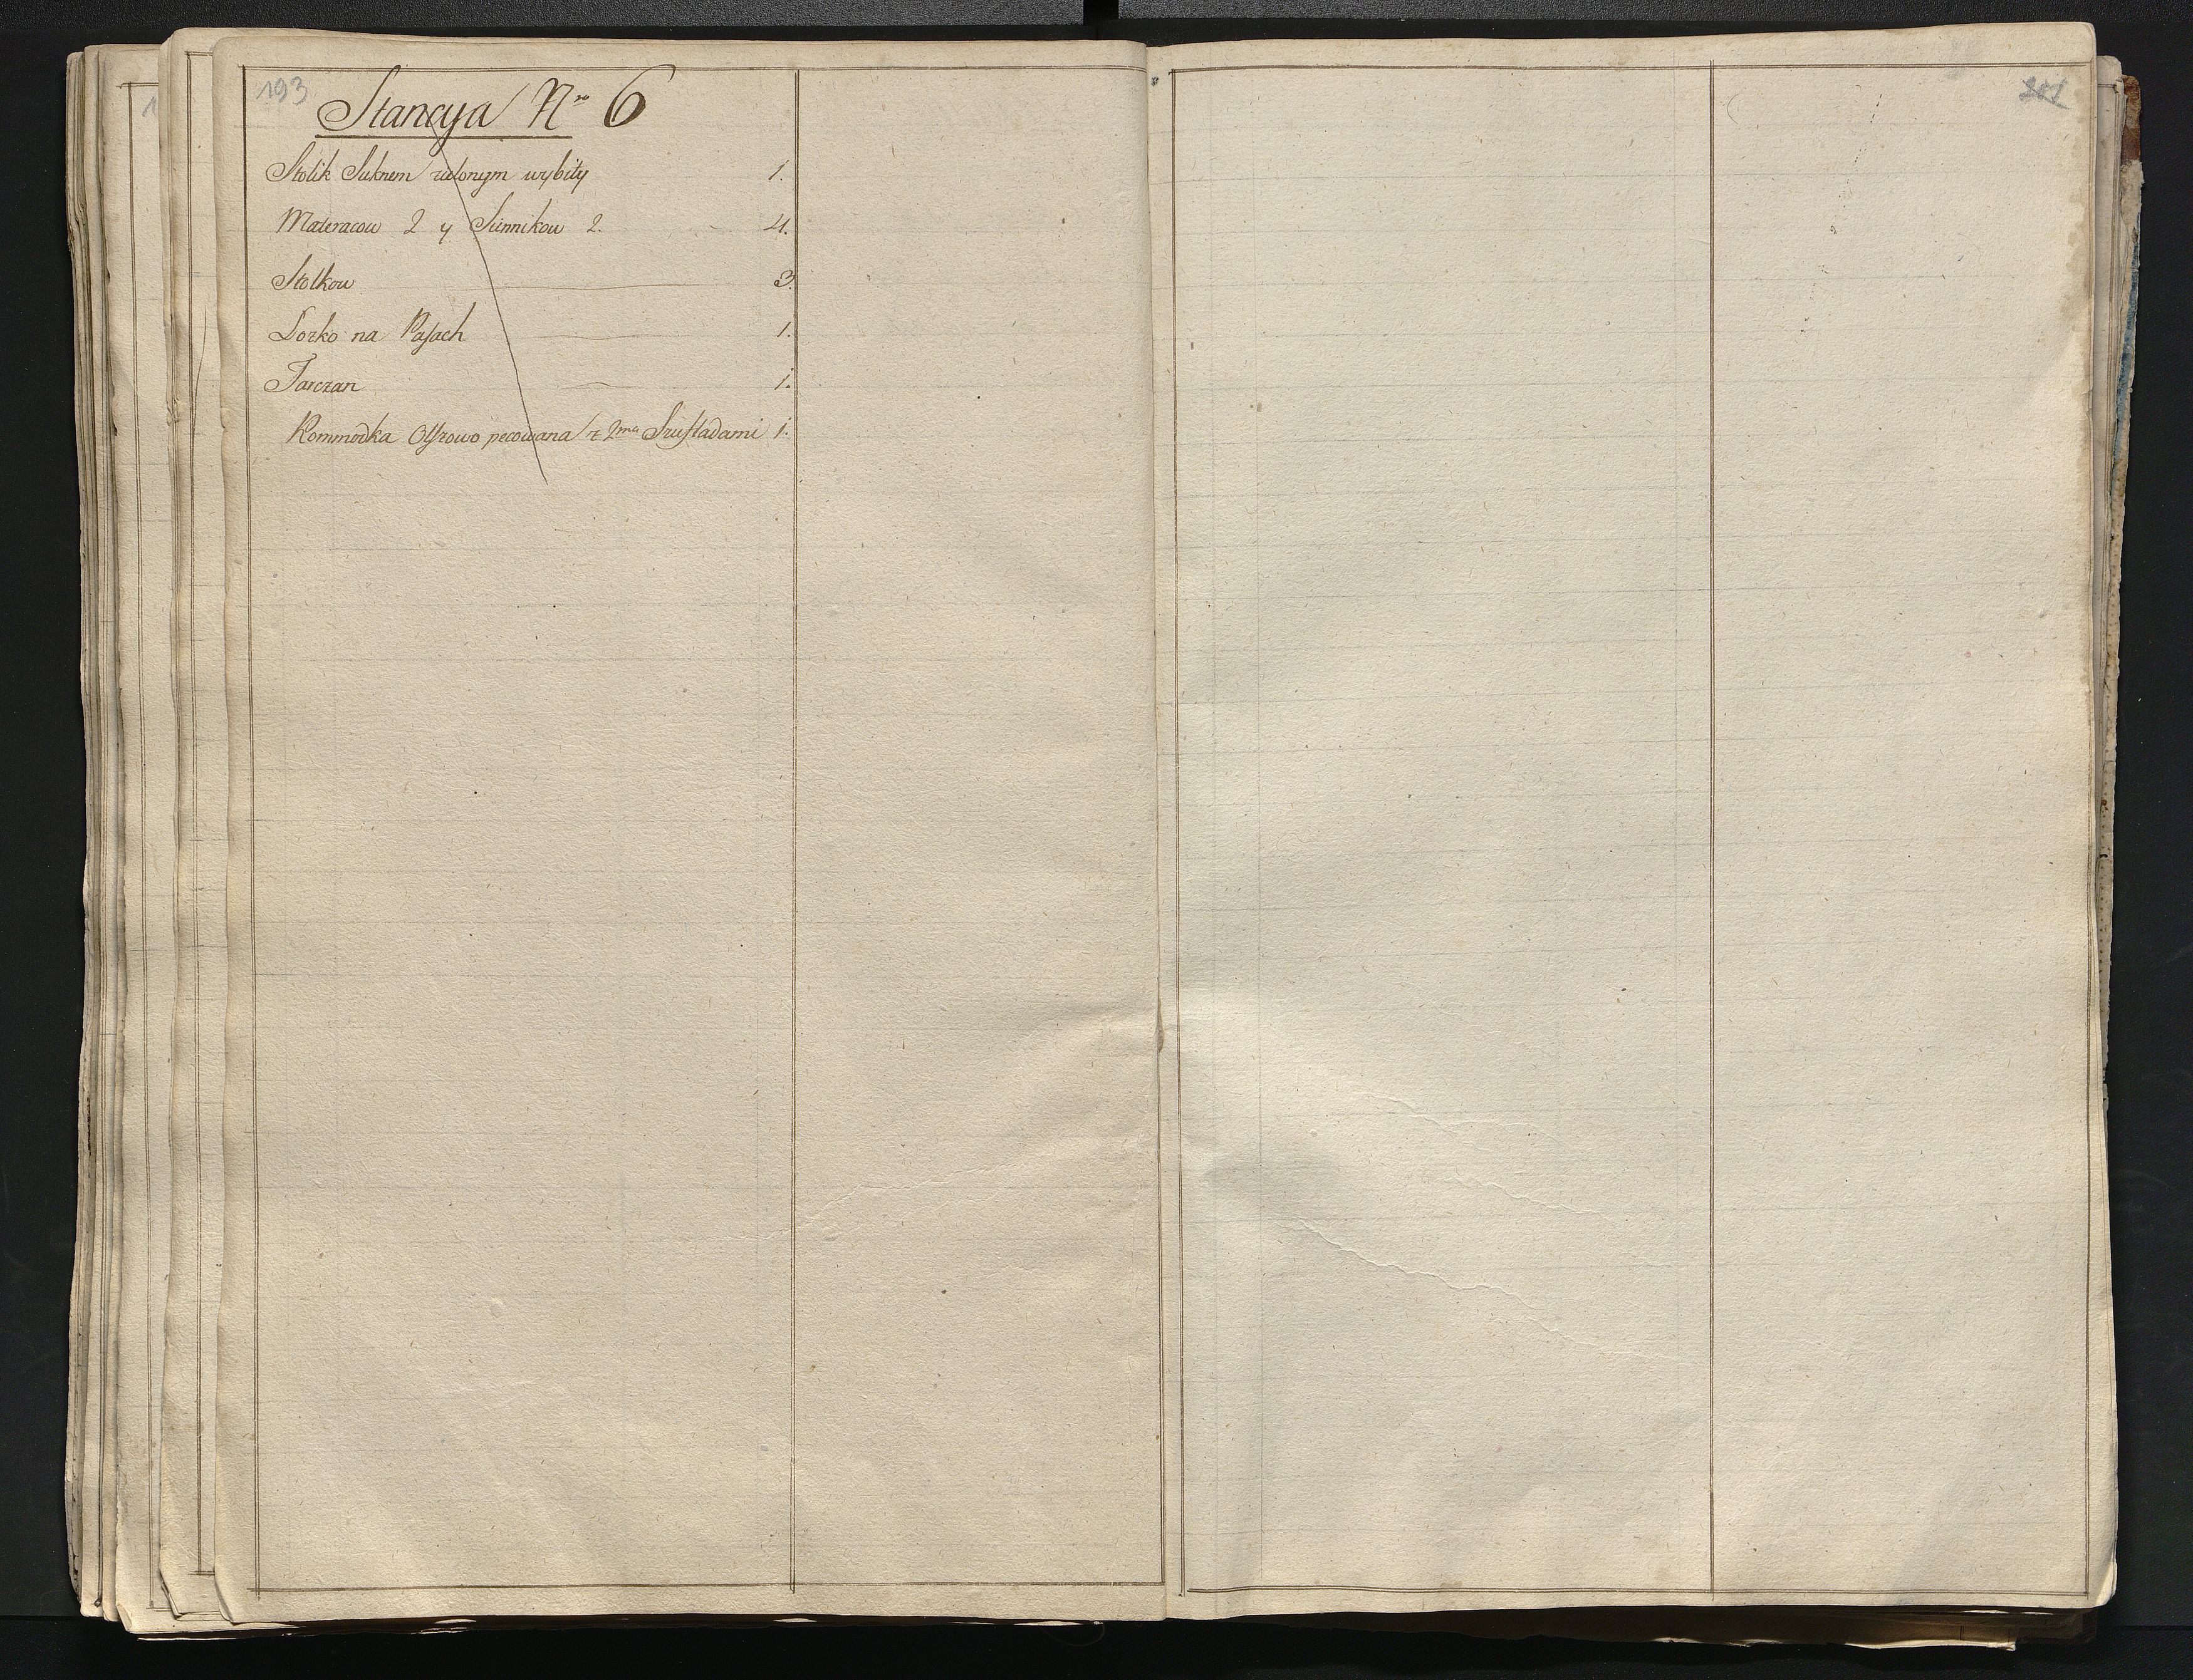 193
Stancya Nro 6
Stolik Suknem zielonym wybity 1.
Materacow 2 y Siennikow 2. 4.
Stolkow 3.
Lozko na Pasach 1.
Tarczan 1.
Kommodka pecowana z 2ma Szufladami 1.